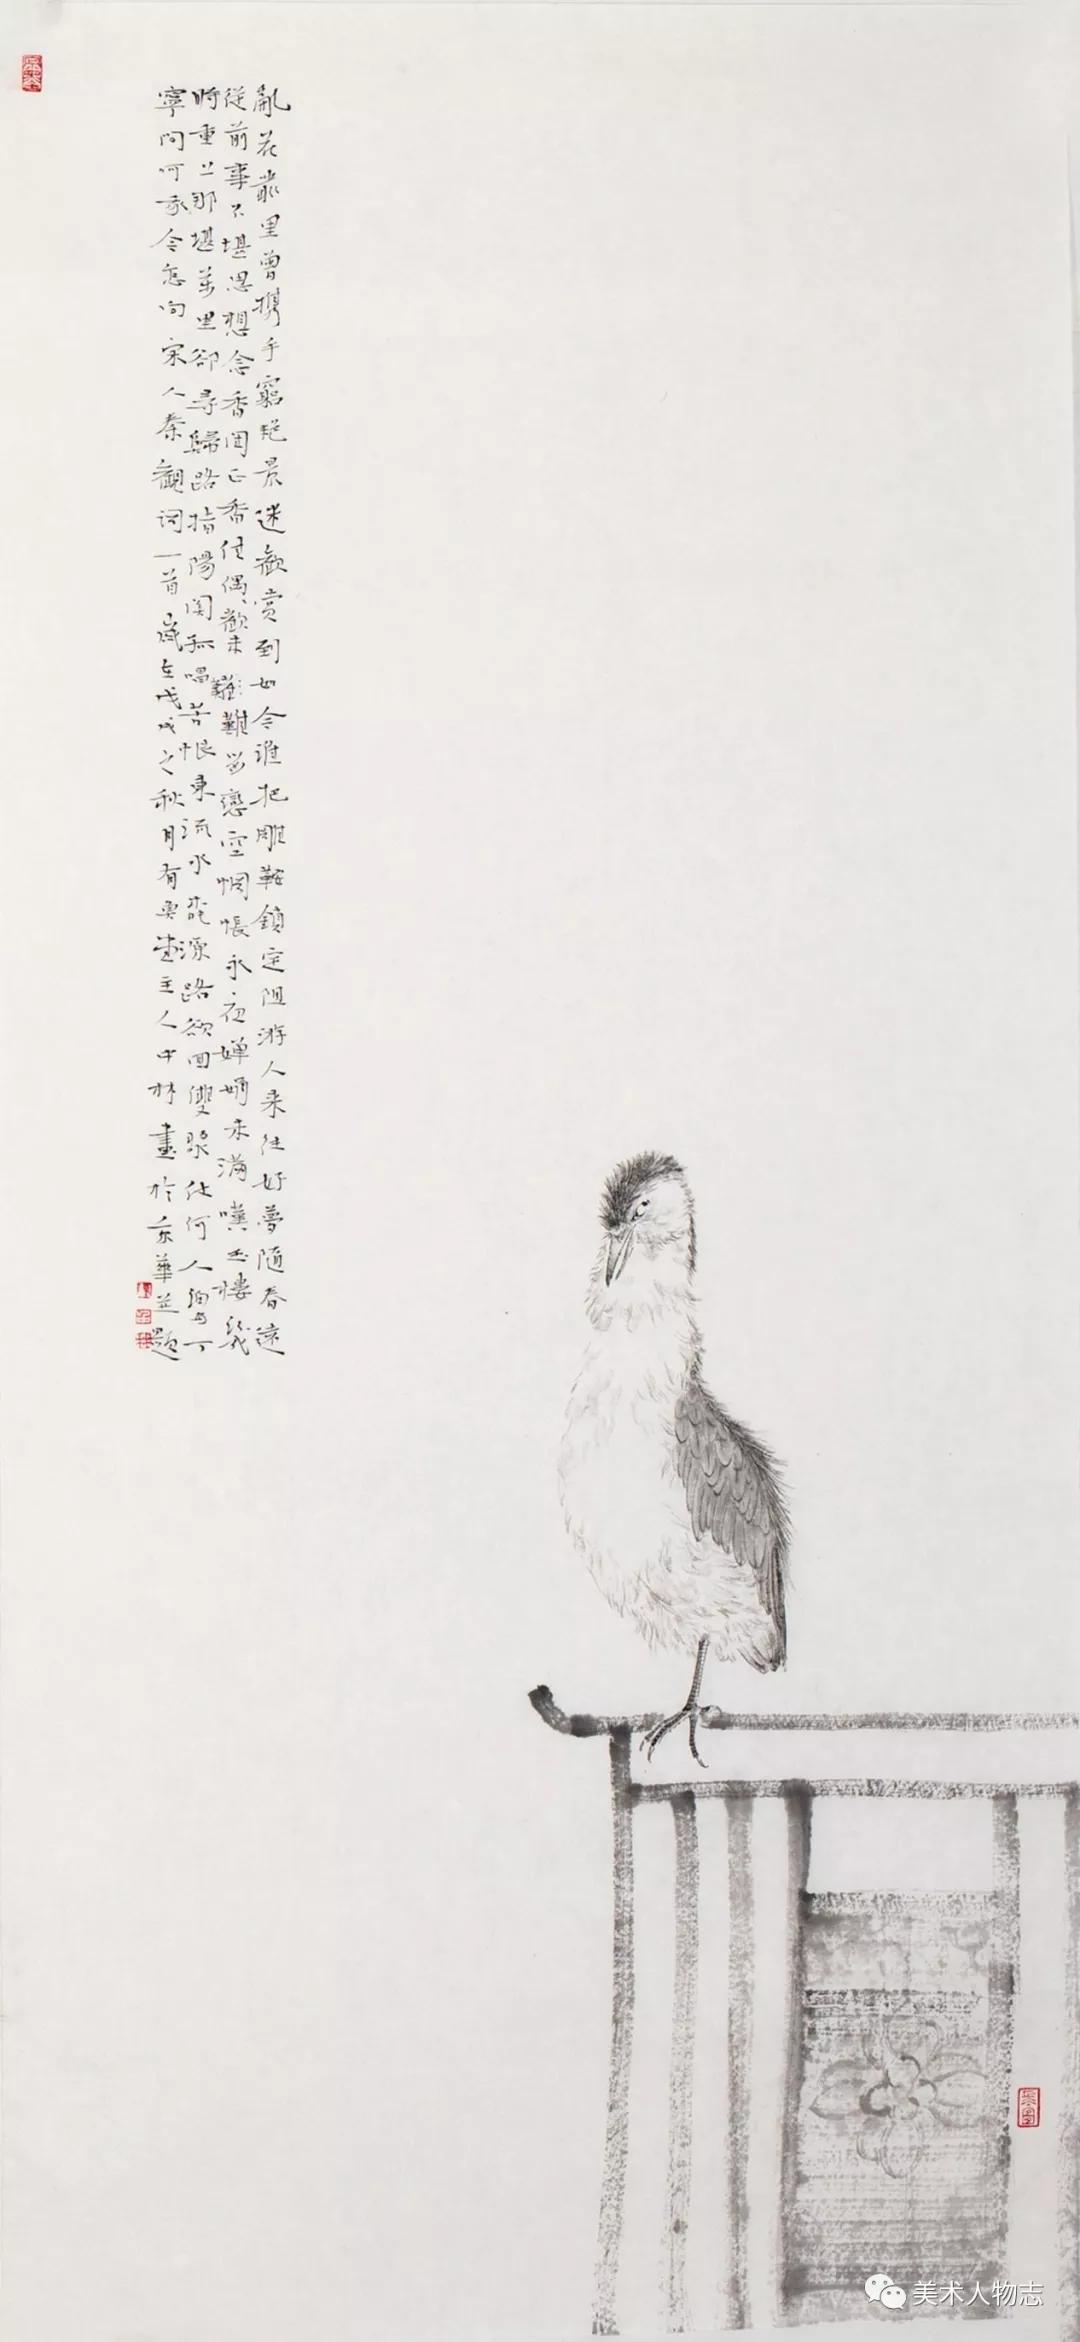 亂花叢里曾携手窮艳景迷歡赏到如今誰把雕鞍鎖定阻游人来往好夢隨春遠
從前事不堪思想念香闺正杳佳偶歡未難難留戀空惆悵永夜嬋娟未滿嘆玉樓幾
時重上那堪萬里卻尋歸路指陽関孤唱苦恨東流水桃源路欲回雙槳仗何人細与丁
寧問呵我今怎向宋人秦觀词一首歲在戊戌之秋月有堂主人中林畫於京華并題
美术人物志